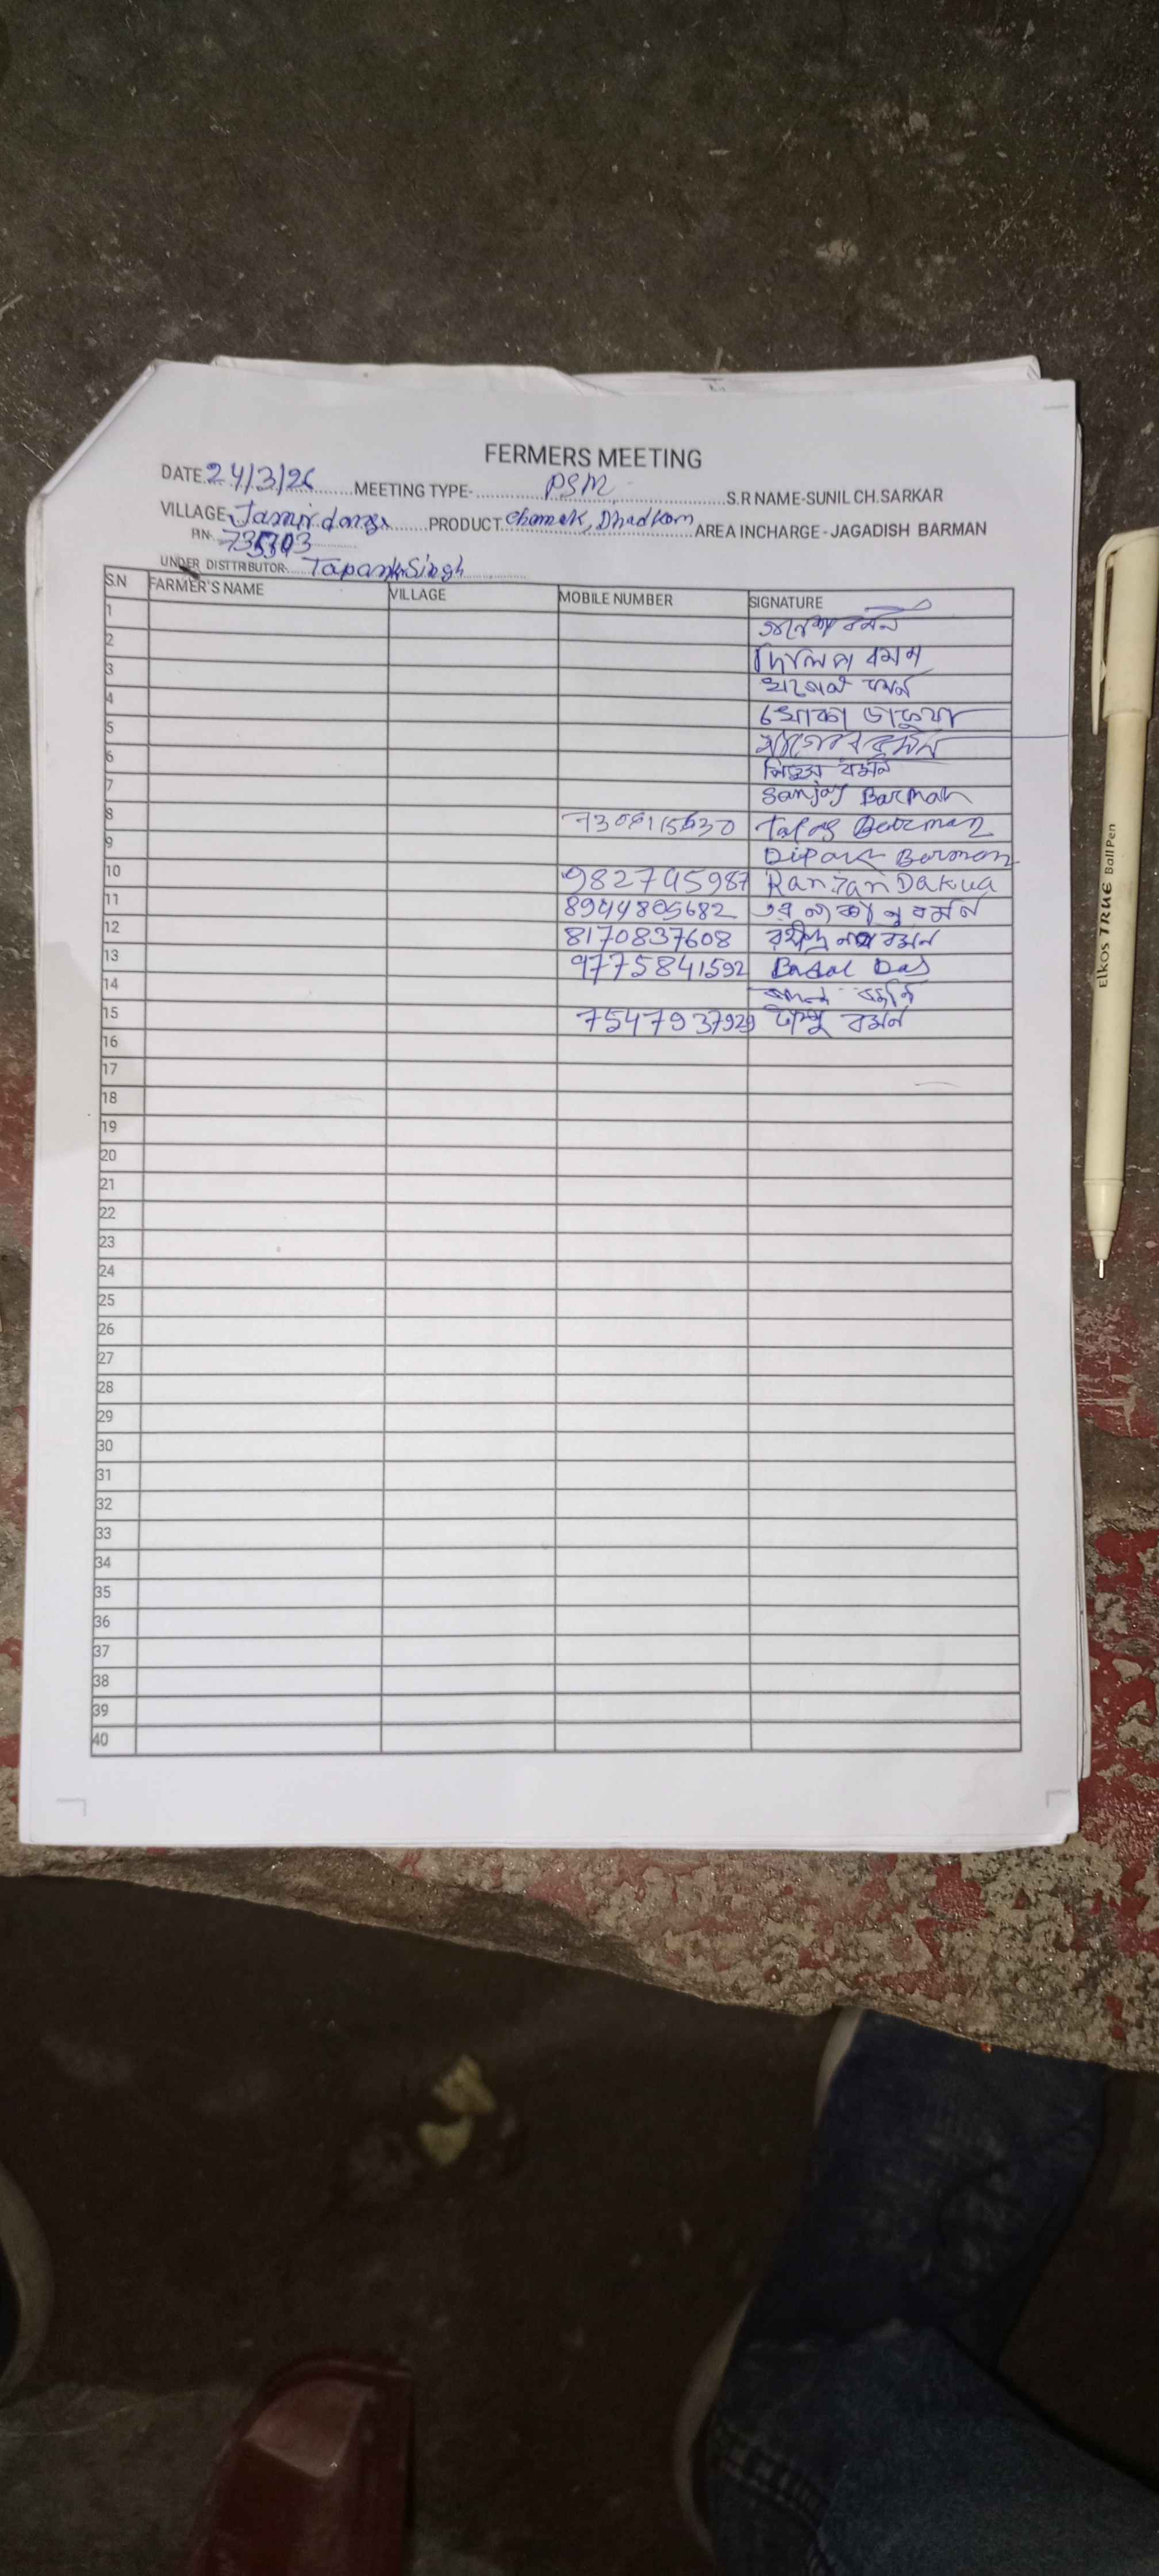 FERMERS MEETING
DATE 24/3/26 MEETING TYPE- PSM S.R NAME-SUNIL CH.SARKAR
VILLAGE- Jamirdanga PRODUCT Chamak, Dhadkan AREA INCHARGE - JAGADISH BARMAN
PIN-
UNDER DISTTRIBUTOR- Tapan Singh
S.N FARMER'S NAME VILLAGE MOBILE NUMBER SIGNATURE
1 বর্মন
2 দিলিপ বমণ
3 বর্মন
4 খোকা ডাকুয়া
5
6 বর্মন
7 Sanjoy Barman
8 Barman
9 Dipak Barman
10 982745987 Ranjan Dakua
11 8944805682 বর্মন
12 8170837608 রথীন্দ্র নাথ বর্মন
13 9775841592 Badal Das
14
15 7547937929 বর্মন
16
17
18
19
20
21
22
23
24
25
26
27
28
29
30
31
32
33
34
35
36
37
38
39
40
Elkos TRUE Ball Pen